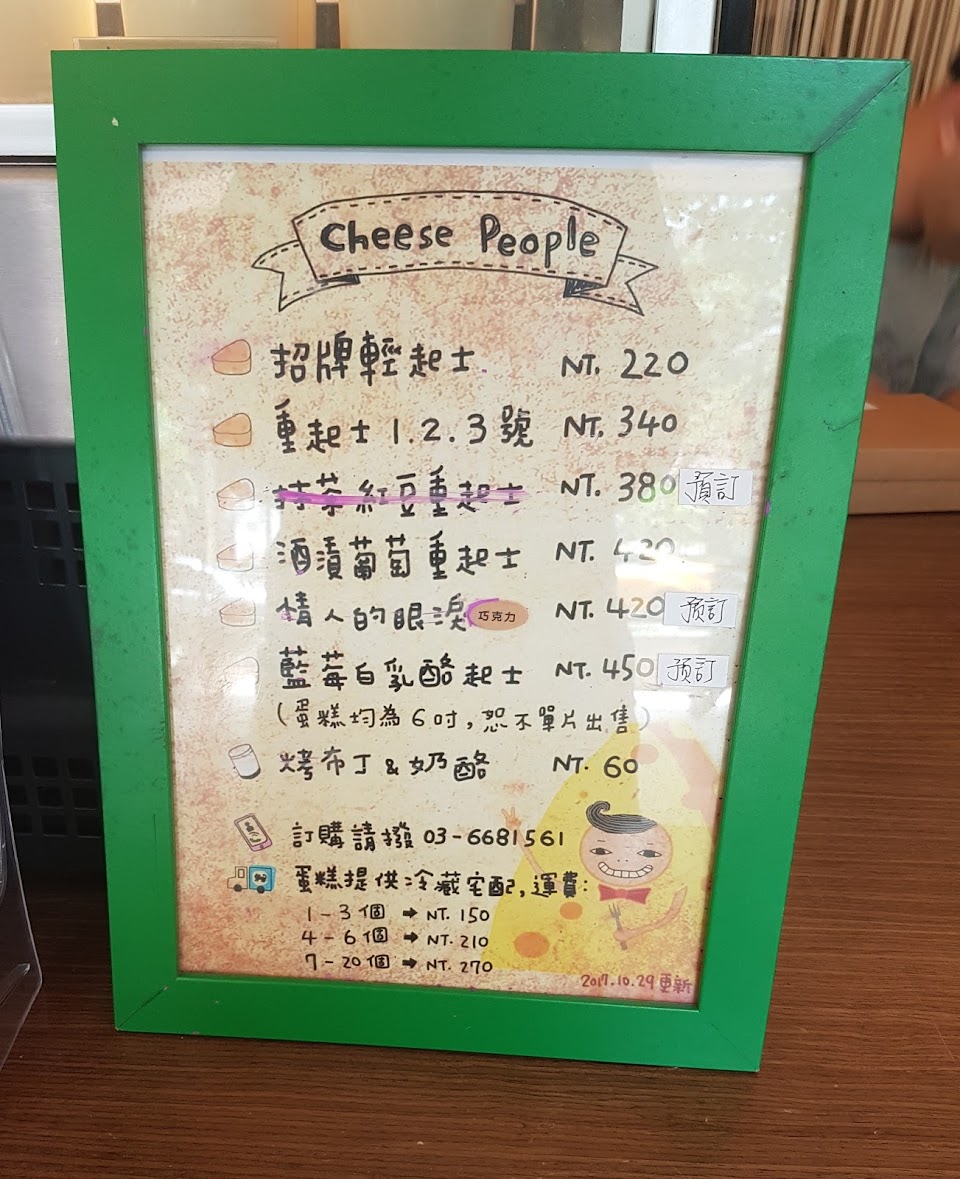 Cheese People
招牌輕起士 NT. 220
重起士 1.2.3號 NT. 340
抹茶紅豆重起士 NT. 380 預訂
酒漬葡萄重起士 NT. 420
情人的眼淚 巧克力 NT. 420 預訂
藍莓白乳酪起士 NT. 450 預訂
(蛋糕均為6吋,恕不單片出售)
烤布丁&奶酪 NT. 60
訂購請撥 03-6681561
蛋糕提供冷藏宅配,運費:
1-3個 → NT. 150
4-6個 → NT. 210
7-20個 → NT. 270
2017.10.29更新